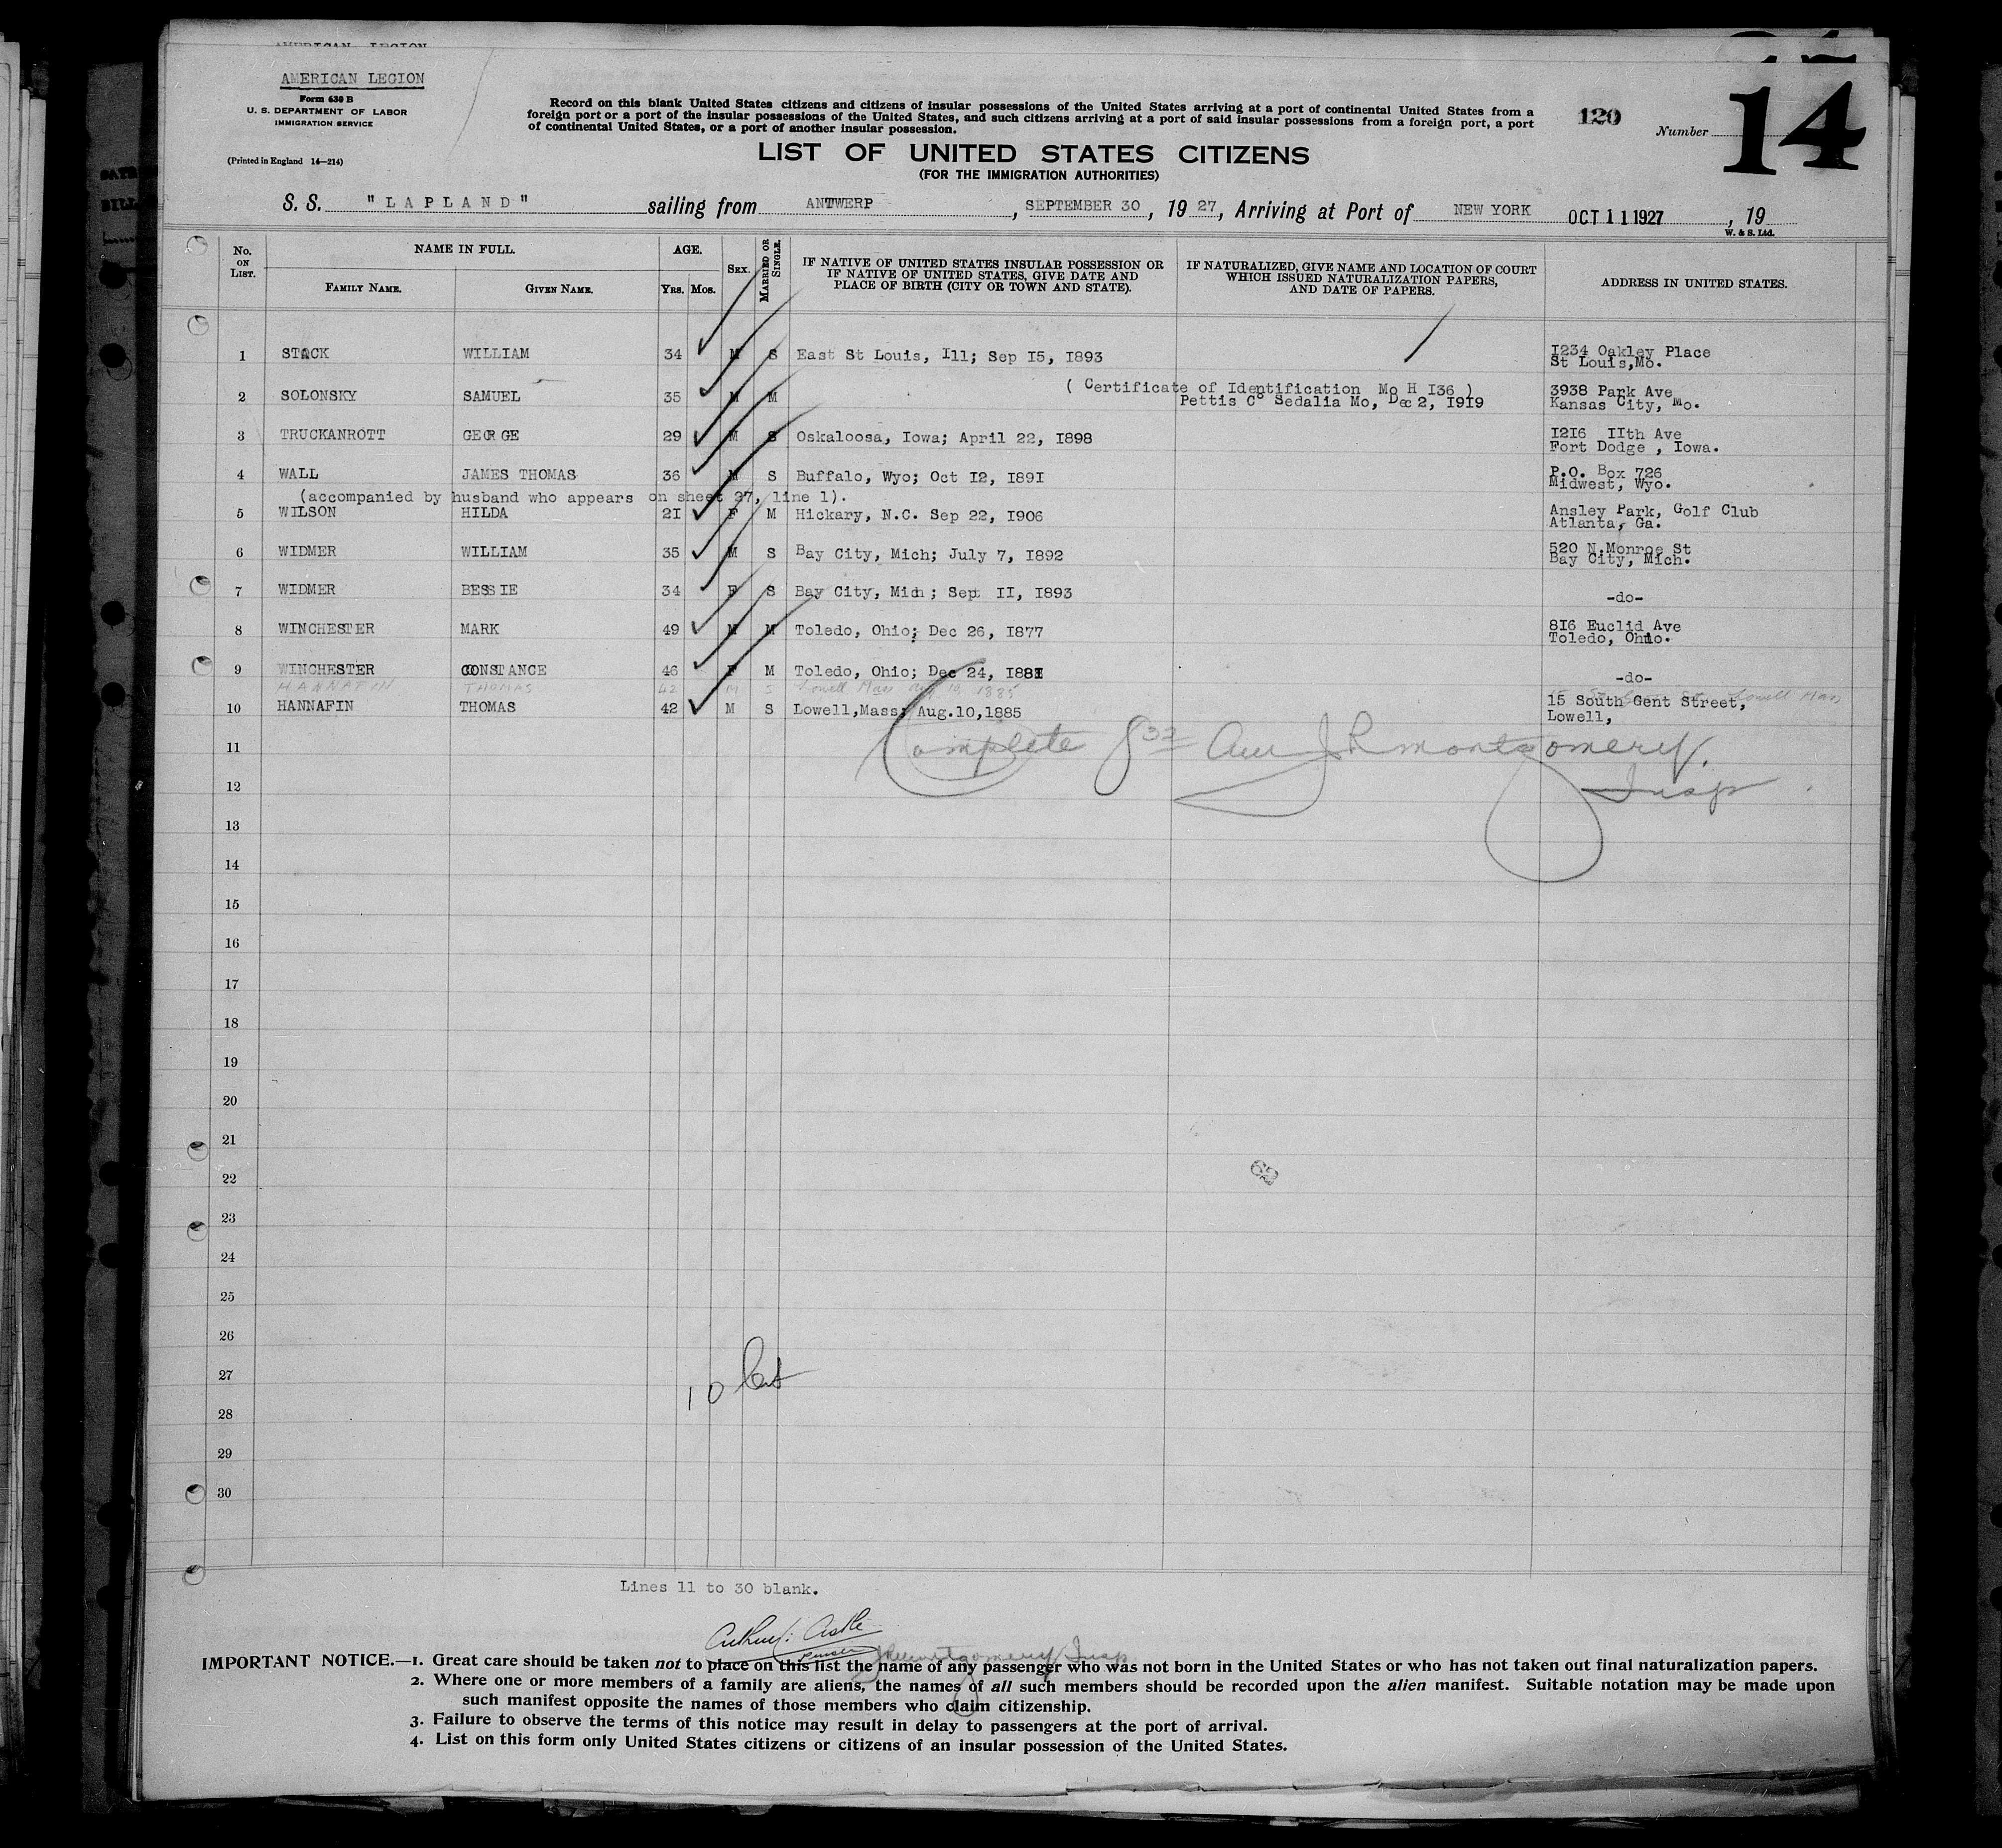 AMERICAN LEGION
AMERICAN LEGION
Form 630 B
U. S. DEPARTMENT OF LABOR
IMMIGRATION SERVICE
(Printed in England 14—214)
Record on this blank United States citizens and citizens of insular possessions of the United States arriving at a port of continental United States from a
foreign port or a port of the insular possessions of the United States, and such citizens arriving at a port of said insular possessions from a foreign port, a port
of continental United States, or a port of another insular possession.
120
Number 14
LIST OF UNITED STATES CITIZENS
(FOR THE IMMIGRATION AUTHORITIES)
S. S. "LAPLAND" sailing from ANTWERP, SEPTEMBER 30, 19 27, Arriving at Port of NEW YORK OCT 11 1927, 19
W. & S. Ltd.
No. ON LIST. NAME IN FULL. FAMILY NAME. GIVEN NAME. AGE. YRS. MOS. SEX. MARRIED OR SINGLE. IF NATIVE OF UNITED STATES INSULAR POSSESSION OR IF NATIVE OF UNITED STATES, GIVE DATE AND PLACE OF BIRTH (CITY OR TOWN AND STATE). IF NATURALIZED, GIVE NAME AND LOCATION OF COURT WHICH ISSUED NATURALIZATION PAPERS, AND DATE OF PAPERS. ADDRESS IN UNITED STATES.
1 STACK WILLIAM 34 M S East St Louis, Ill; Sep I5, I893 I234 Oakley Place
St Louis,Mo.
2 SOLONSKY SAMUEL 35 M M ( Certificate of Identification Mo H I36 ) 3938 Park Ave
Pettis Co Sedalia Mo, Dec 2, I9I9 Kansas City, Mo.
3 TRUCKANROTT GEORGE 29 M S Oskaloosa, Iowa; April 22, I898 I2I6 IIth Ave
Fort Dodge , Iowa.
4 WALL JAMES THOMAS 36 M S Buffalo, Wyo; Oct I2, I89I P.O. Box 726
Midwest, Wyo.
(accompanied by husband who appears on sheet 27, line 1).
5 WILSON HILDA 2I F M Hickary, N.C. Sep 22, I906 Ansley Park, Golf Club
Atlanta, Ga.
6 WIDMER WILLIAM 35 M S Bay City, Mich; July 7, I892 520 N.Monroe St
Bay City, Mich.
7 WIDMER BESSIE 34 F S Bay City, Mich; Sept II, I893 -do-
8 WINCHESTER MARK 49 M M Toledo, Ohio; Dec 26, I877 8I6 Euclid Ave
Toledo, Ohio.
9 WINCHESTER CONSTANCE 46 F M Toledo, Ohio; Dec 24, I881 -do-
HANNAFIN THOMAS 42 M S Lowell Mass Aug 10 1885 Lowell Mass
10 HANNAFIN THOMAS 42 M S Lowell,Mass; Aug.10,1885 15 South Gent Street,
Lowell,
11 Complete J R Montgomery.
12 Insp
13
14
15
16
17
18
19
20
21
22
23
24
25
26
27
10
28
29
30
Lines 11 to 30 blank.
Castle
Purser
JRMontgomery Insp
IMPORTANT NOTICE.—1. Great care should be taken not to place on this list the name of any passenger who was not born in the United States or who has not taken out final naturalization papers.
2. Where one or more members of a family are aliens, the names of all such members should be recorded upon the alien manifest. Suitable notation may be made upon
such manifest opposite the names of those members who claim citizenship.
3. Failure to observe the terms of this notice may result in delay to passengers at the port of arrival.
4. List on this form only United States citizens or citizens of an insular possession of the United States.